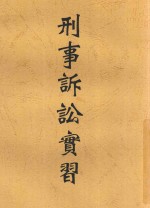 刑事訴訟實習